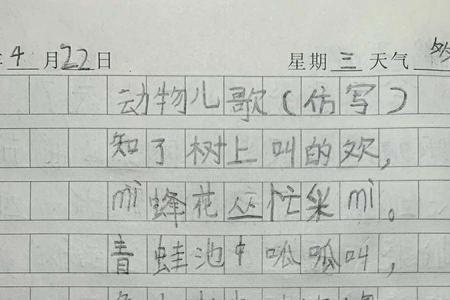 年4月22日 星期三 天气
动物儿歌(仿写)
知了树上叫的欢,
mì蜂花丛忙采mì。
青蛙池中呱呱叫,